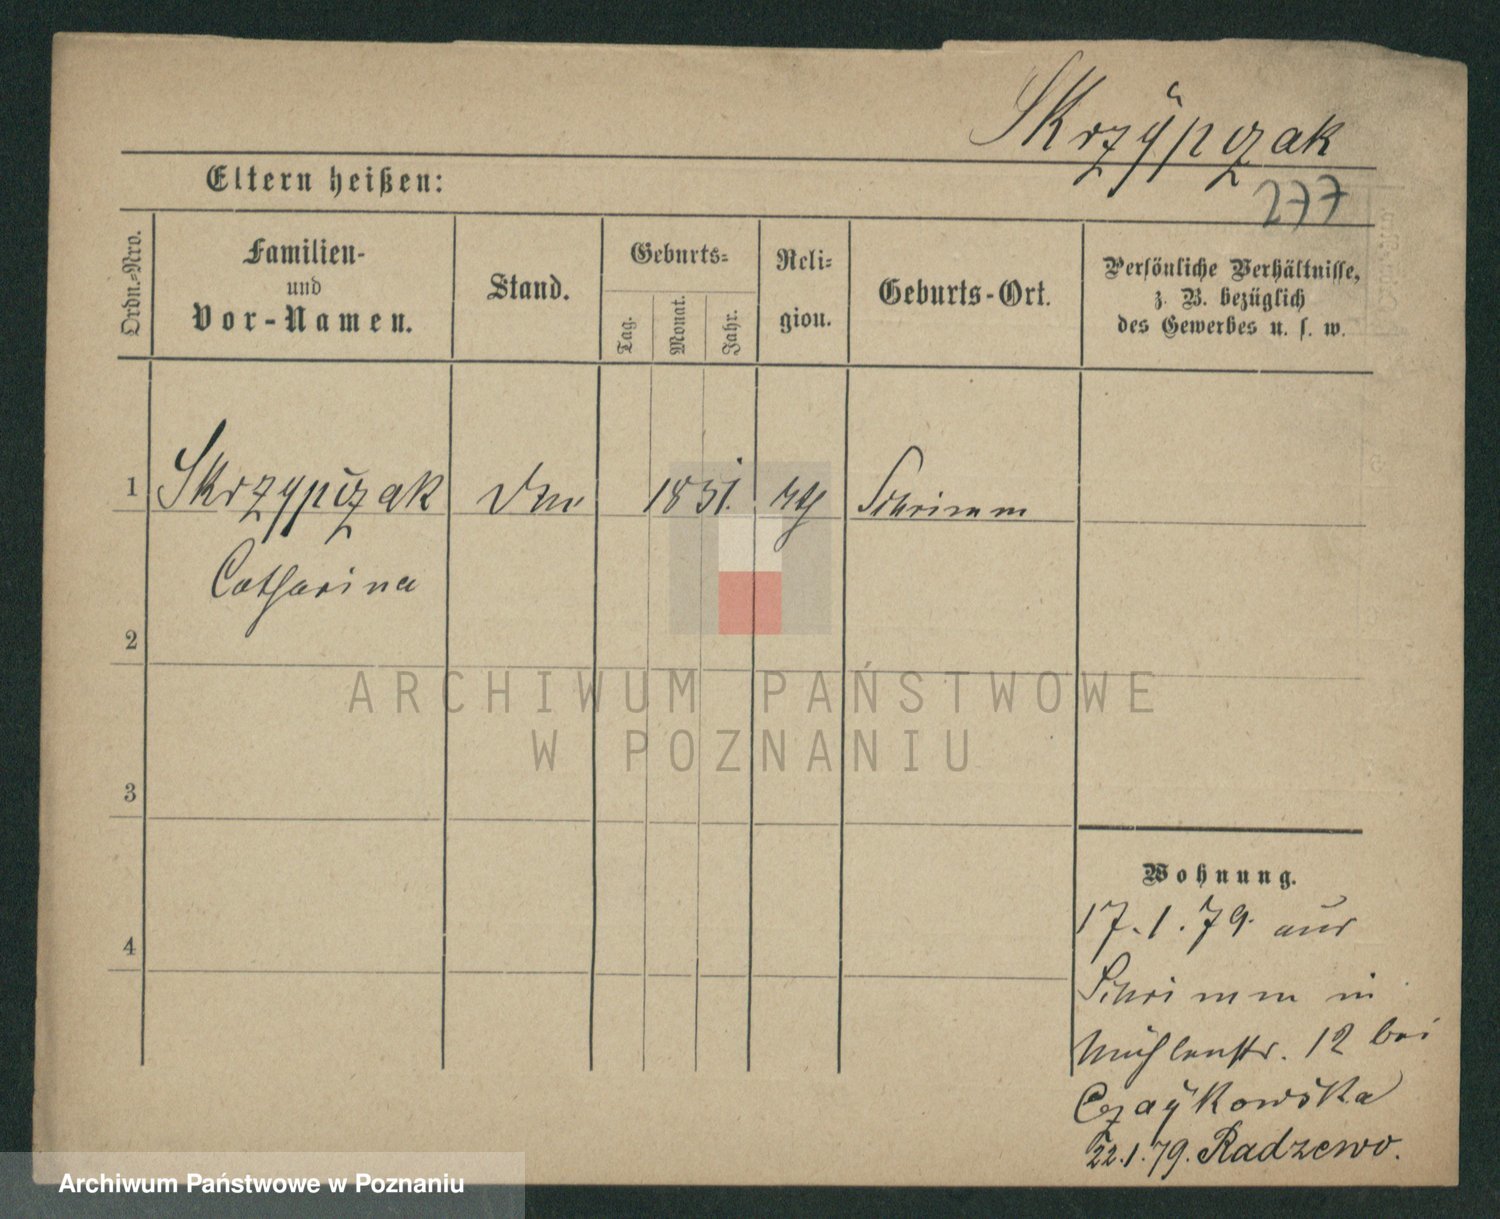 Skrzÿpczak
277
Eltern heißen:
Ordn.-Nro.
Familien-
und
Vor-Namen.
Stand.
Geburts-
Tag.
Monat.
Jahr.
Reli-
gion.
Geburts-Ort.
Persönliche Verhältnisse,
z. B. bezüglich
des Gewerbes u. s. w.
1
Skrzypczak
1851.
Schrimm
Catharina
2
3
4
ARCHIWUM PAŃSTWOWE
W POZNANIU
Wohnung.
17.1.79. aus
Schrimm in
Mühlenstr. 12 bei
Czaÿkowska
22.1.79. Radzewo.
Archiwum Państwowe w Poznaniu